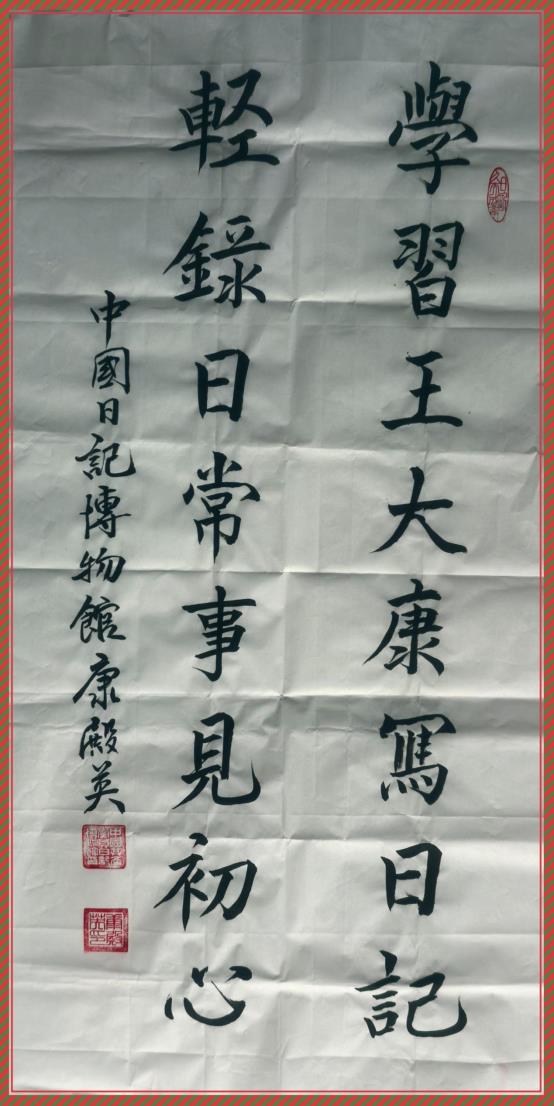 學習王大康寫日記
輕錄日常事見初心
中國日記博物館康殿英